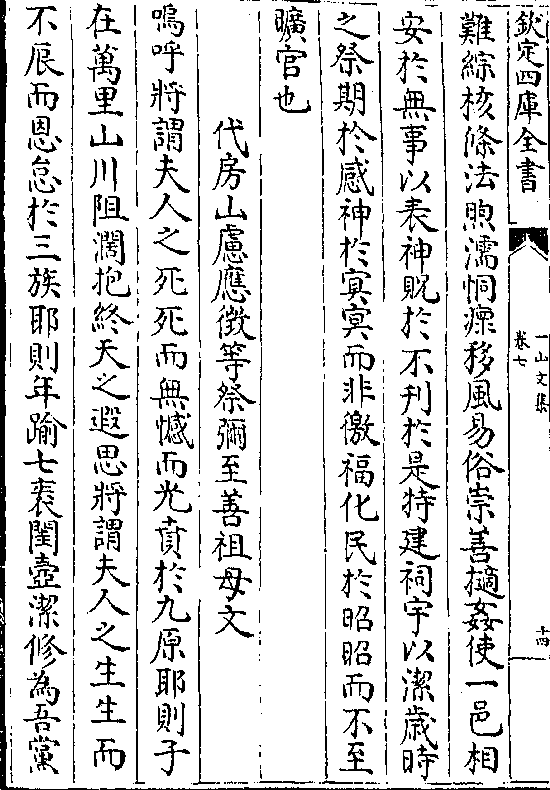 欽定四庫全書
一山文集
卷七
十四
難綜核條法煦濡恫瘝移風易俗崇善擿姦使一邑相
安於無事以表神貺於不刋於是特建祠宇以潔歳時
之祭期於感神於㝠㝠而非徼福化民於昭昭而不至
曠官也
代房山慮應徴等祭彌至善祖母文
嗚呼將謂夫人之死死而無憾而光賁於九原耶則子
在萬里山川阻濶抱終天之遐思將謂夫人之生生而
不辰而恩怠於三族耶則年踰七袠閨壼潔修為吾黨